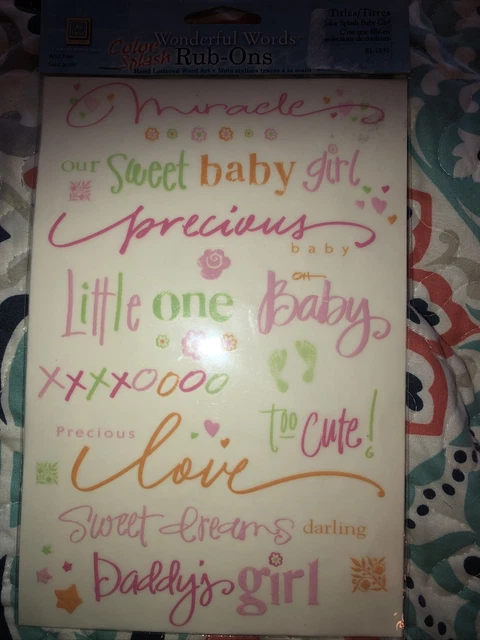 Wonderful Words
Color Splash Rub-Ons
Titles/Titres
miracle
our sweet baby girl
precious
baby
Little one
oh
Baby
xxxxoooo
too cute!
Precious
love
Sweet dreams darling
Daddy's girl